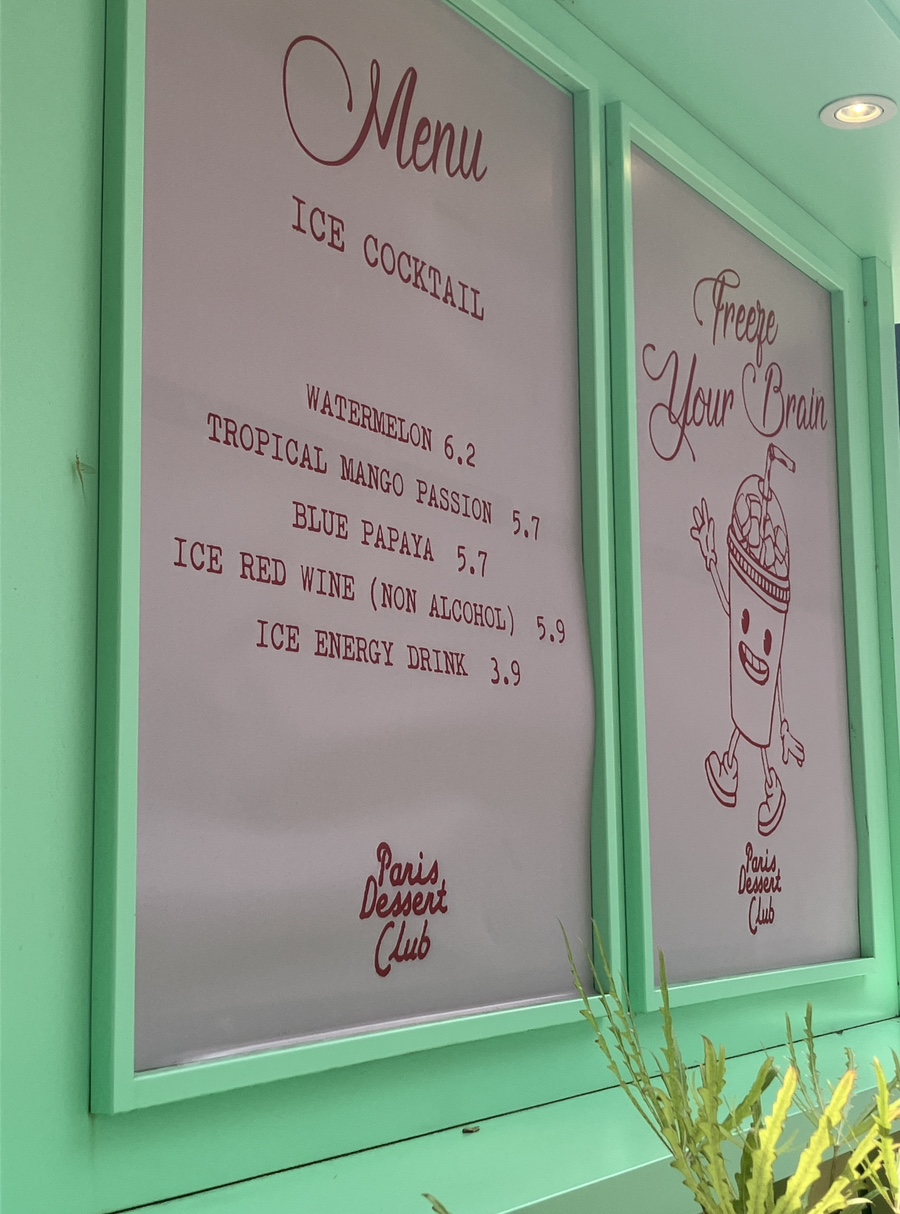 Menu
ICE COCKTAIL
WATERMELON 6.2
TROPICAL MANGO PASSION 5.7
BLUE PAPAYA 5.7
ICE RED WINE (NON ALCOHOL) 5.9
ICE ENERGY DRINK 3.9
Paris
Dessert
Club
Freeze
Your Brain
Paris
Dessert
Club